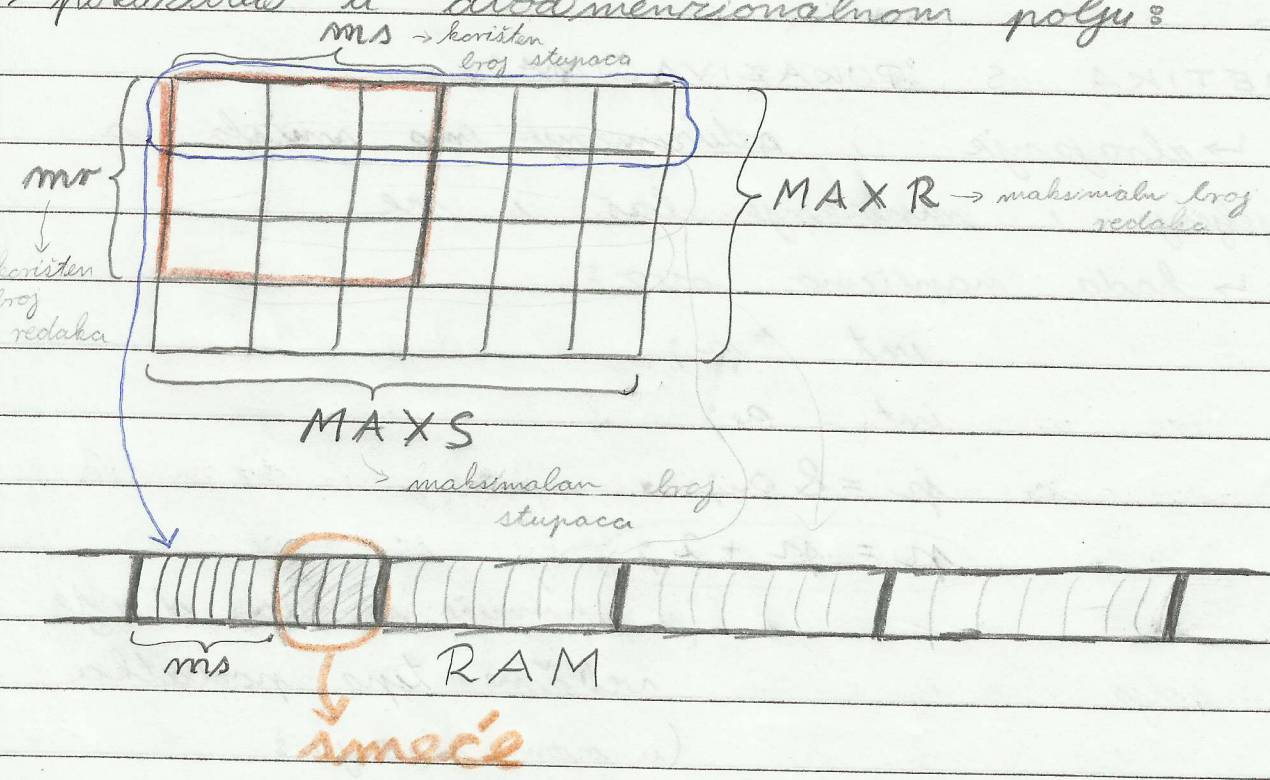 pokazivač u dvodimenzionalnom polju:
ms → korišten
broj stupaca
mr
korišten
broj
redaka
MAXR → maksimalni broj
redaka
MAXS
→ maksimalan broj
stupaca
ms
RAM
smeće